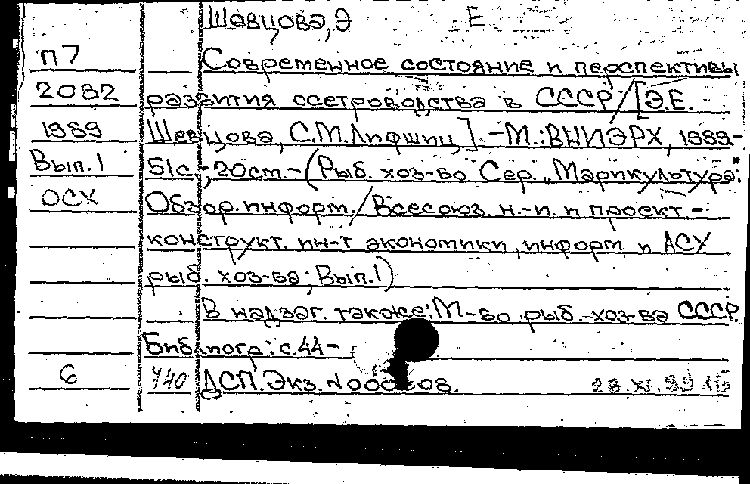 Шевцова, Э Е
П7 Современное состояние и перспективы
2082 развития осетроводства в СССР/[Э.Е.
1989 Шевцова, С.М.Лифшиц]. -М.:ВНИЭРХ, 1989-
Вып.1 51с.; 20см.-(Рыб. хоз-во Сер. „Марикультура:
ОСХ Обзор.информ./Всесоюз. н.-и. и проект.-
конструкт. ин-т экономики, информ. и АСУ
рыб. хоз-ва; Вып.1)
В надзаг. также: М-во рыб. хоз-ва СССР
Библиогр.: с.44-
6 У40 ДСП. Экз. N